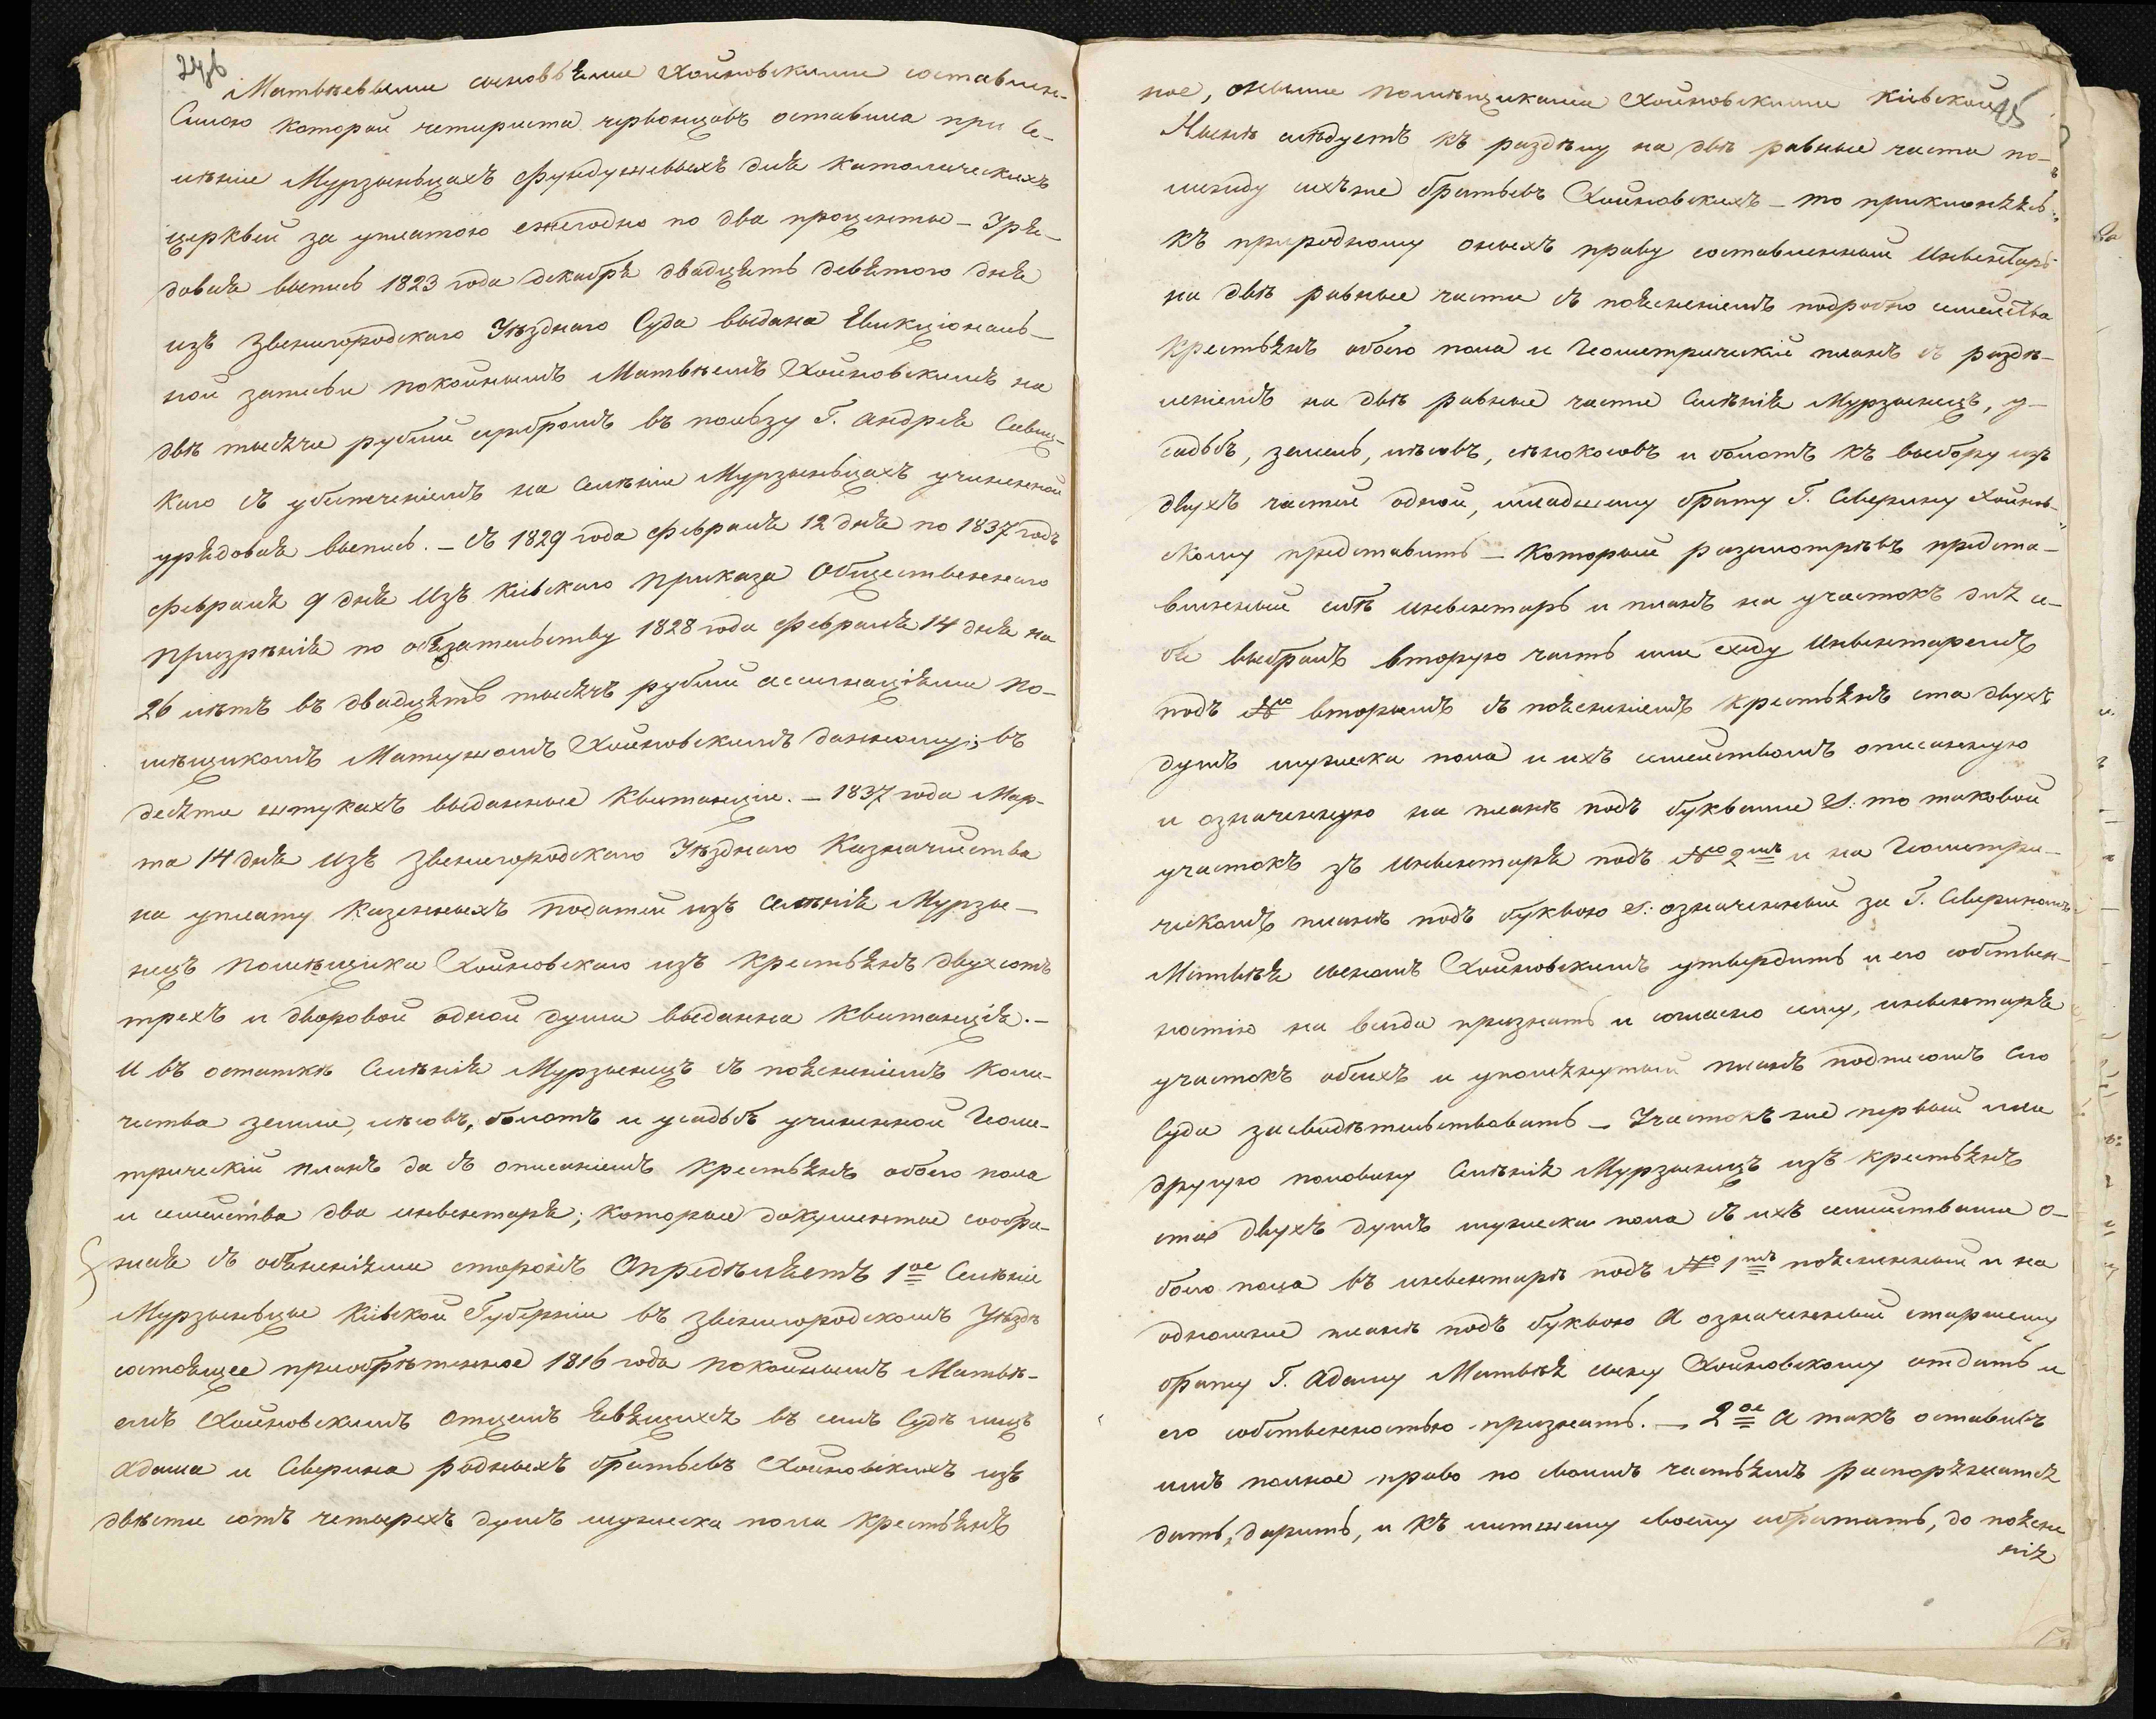 246
Матвѣевыми сыновьями Хойновскими составлен-
Силою которой четириста червонцовъ оставила при Се-
лѣніе Мурзыньцахъ фундушевыхъ для католическихъ
церквей за уплатою ежегодно по два проценты – Уря-
довая выпись 1823 года декабря двадцять девятого дня
изъ Звенигородского Уѣздного Суда выдана Эвикціональ-
ной записи покойнымъ Матвѣемъ Хойновскимъ на
двѣ тысячи рублей серебромъ въ пользу Г. Андрея Савиц-
кого съ убеспеченіемъ на Селѣніе Мурзыньцахъ учиненной
урядовая выпись. – Съ 1829 года февраля 12 дня по 1837 годъ
февраля 9 дня Изъ Кіевского Приказа Общественного
Призрѣнія по обязательству 1828 года Февраля 14 дня на
26 лѣтъ въ двадцять тысячъ рублей ассигнаціями По-
мѣщикомъ Матеушомъ Хойновскимъ данному; въ
десяти штукахъ выданные Квитанціи. – 1837 года Мар-
та 14 дня Изъ Звенигородского Уѣздного Казначейства
на уплату Казенныхъ податей изъ Селѣнія Мурзы-
нецъ помѣщика Хойновского изъ крестьянъ двухсотъ
трехъ и дворовой одной души выданна Квитанція. –
И въ остаткѣ Селѣнія Мурзынецъ съ поясненіемъ Коли-
чества земли, лѣсовъ, болотъ и усадьбъ учиненной Геоме-
трическій планъ да съ описаніемъ крестьянъ обоего пола
и семейства два инвентаря; которые документы сообра-
жая съ объясненіями сторонъ Опредѣляетъ 1ое Селѣніе
Мурзыньцы Кіевской Губерніи въ Звенигородскомъ Уѣздѣ
состоящее приобрѣтенное 1816 года покойнымъ Матвѣ-
емъ Хойновскимъ отцемъ явящихся въ семъ Судѣ лицъ
Адама и Северина родныхъ братьевъ Хойновскихъ изъ
двѣсти сотъ четырехъ душъ мужеска пола крестьянъ
15
ное, оными помѣщиками Хойновскими Кіевской
Нынѣ слѣдуетъ къ раздѣлу на двѣ равные части по-
между ихъ же братьевъ Хойновскихъ – то
къ природному оныхъ праву составленный Инвентарь
на двѣ равные части съ поясненіемъ подробно семейства
Крестьянъ обоего пола и Геометрическій планъ съ раздѣ-
леніемъ на двѣ равные части Селѣнія Мурзынецъ, у-
садьбъ, земель, лѣсовъ, сѣнокосовъ и болотъ къ выбору изъ
двухъ частей одной, младшему брату Г. Северину Хойнов-
скому представить – Который разсмотрѣвъ предста-
вленный себѣ инвентарь и планъ на участокъ для се-
бе выбралъ вторую часть или схеду Инвентаремъ
подъ №ю вторымъ съ поясненіемъ крестьянъ ста двухъ
душъ мужеска пола и ихъ семействомъ описанную
и означенную на планѣ подъ буквами то таковой
участокъ въ инвентарѣ подъ №ю 2мъ и на Геометри-
ческомъ планѣ подъ буквою означенный за Г. Севериномъ
Матвѣя сыномъ Хойновскимъ утвердить и его собствен-
ностію на всегда признать и согласно сему, инвентаря
участокъ обоихъ и упомянутый планъ подписомъ Сего
Суда засвидѣтельствовать – Участокъ же первый или
другую половину Селѣнія Мурзынецъ изъ крестьянъ
ста двухъ душъ мужеска пола съ ихъ семействами о-
боего пола въ инвентарѣ подъ №ю 1мъ поясненный и на
одномже планѣ подъ буквою А означенный старшему
брату Г. Адаму Матвѣя сыну Хойновскому отдать и
его собственностью признать. – 2ое А такъ оставивъ
имъ полное право по своимъ частьямъ распоряжатся
дать, дарить, и къ лутшему своему обратить, до поясне
нія